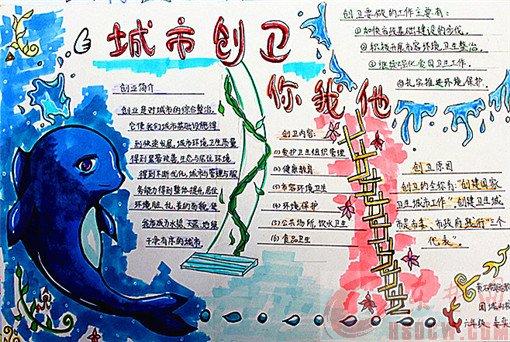 城市创卫
你我他
创业简介
创业是对城市的综合整治,
它使我们城市基础设施得
到快速发展,城市环境卫生质量
得到显著改善,生态与居住环境
得到不断优化,城市管理与服
务能力得到整体提升,居住
环境脏、乱、差的旧貌,变
成为水清、天蓝、地绿
干净有序的城市
创卫要做的工作主要有:
①加快市政基础建设的步伐。
②积极开展市容环境卫生整治。
③继续深化食品卫生工作。
④扎实推进环境保护。
创卫内容:
(1)爱护卫生组织管理
(2)健康教育
(3)市容环境卫生
(4)环境保护
(5)公共场所、饮水卫生
(6)食品卫生
创卫原因
创卫的全称为:"创建国家
卫生城市工作",创建卫生城
市是市委、市政府践行"三个
代表"。
六年级